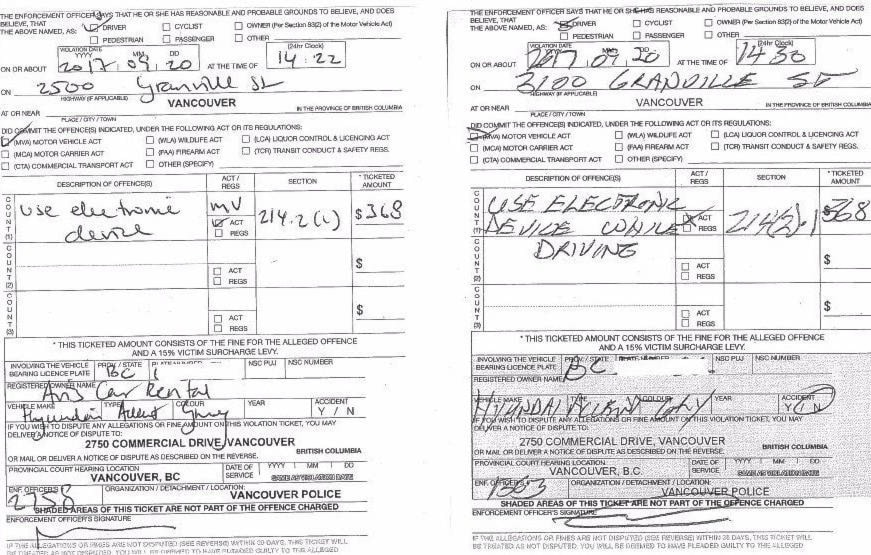 THE ENFORCEMENT OFFICER SAYS THAT HE OR SHE HAS REASONABLE AND PROBABLE GROUNDS TO BELIEVE, AND DOES
BELIEVE, THAT
THE ABOVE NAMED, AS:
DRIVER
CYCLIST
OWNER (Per Section 83(2) of the Motor Vehicle Act)
PEDESTRIAN
PASSENGER
OTHER
VIOLATION DATE
YYYY MM DD
(24hr Clock)
ON OR ABOUT 2017 09 20 AT THE TIME OF 14:22
ON 2500 Granville St
HIGHWAY (IF APPLICABLE)
AT OR NEAR VANCOUVER IN THE PROVINCE OF BRITISH COLUMBIA
PLACE / CITY / TOWN
DID COMMIT THE OFFENCE(S) INDICATED, UNDER THE FOLLOWING ACT OR ITS REGULATIONS:
(MVA) MOTOR VEHICLE ACT (WLA) WILDLIFE ACT (LCA) LIQUOR CONTROL & LICENCING ACT
(MCA) MOTOR CARRIER ACT (FAA) FIREARM ACT (TCR) TRANSIT CONDUCT & SAFETY REGS.
(CTA) COMMERCIAL TRANSPORT ACT OTHER (SPECIFY)
DESCRIPTION OF OFFENCE(S) ACT / REGS SECTION * TICKETED AMOUNT
COUNT (1)
Use electronic device
MV
ACT
REGS
214.2(1)
$368
COUNT (2)
ACT
REGS
$
COUNT (3)
ACT
REGS
$
* THIS TICKETED AMOUNT CONSISTS OF THE FINE FOR THE ALLEGED OFFENCE
AND A 15% VICTIM SURCHARGE LEVY.
INVOLVING THE VEHICLE PROV / STATE NSC PUJ NSC NUMBER
BEARING LICENCE PLATE BC
REGISTERED OWNER NAME
Car Rental
VEHICLE MAKE TYPE COLOUR YEAR ACCIDENT
Hyundai Accent Grey Y / N
IF YOU WISH TO DISPUTE ANY ALLEGATIONS OR FINE AMOUNT ON THIS VIOLATION TICKET, YOU MAY
DELIVER A NOTICE OF DISPUTE TO:
2750 COMMERCIAL DRIVE, VANCOUVER
BRITISH COLUMBIA
OR MAIL OR DELIVER A NOTICE OF DISPUTE AS DESCRIBED ON THE REVERSE.
PROVINCIAL COURT HEARING LOCATION DATE OF SERVICE YYYY MM DD
VANCOUVER, BC SAME AS VIOLATION DATE
ENF. OFFICER'S ORGANIZATION / DETACHMENT / LOCATION
2758 VANCOUVER POLICE
SHADED AREAS OF THIS TICKET ARE NOT PART OF THE OFFENCE CHARGED
ENFORCEMENT OFFICER'S SIGNATURE
IF THE ALLEGATIONS OR FINES ARE NOT DISPUTED (SEE REVERSE) WITHIN 30 DAYS, THIS TICKET WILL
BE TREATED AS NOT DISPUTED, YOU WILL BE DEEMED TO HAVE PLEADED GUILTY TO THE ALLEGED
THE ENFORCEMENT OFFICER SAYS THAT HE OR SHE HAS REASONABLE AND PROBABLE GROUNDS TO BELIEVE, AND DOES
BELIEVE, THAT
THE ABOVE NAMED, AS:
DRIVER
CYCLIST
OWNER (Per Section 83(2) of the Motor Vehicle Act)
PEDESTRIAN
PASSENGER
OTHER
VIOLATION DATE
YYYY MM DD
(24hr Clock)
ON OR ABOUT 2017 09 20 AT THE TIME OF 1430
ON 3100 GRANVILLE ST
HIGHWAY (IF APPLICABLE)
AT OR NEAR VANCOUVER IN THE PROVINCE OF BRITISH COLUMBIA
PLACE / CITY / TOWN
DID COMMIT THE OFFENCE(S) INDICATED, UNDER THE FOLLOWING ACT OR ITS REGULATIONS:
(MVA) MOTOR VEHICLE ACT (WLA) WILDLIFE ACT (LCA) LIQUOR CONTROL & LICENCING ACT
(MCA) MOTOR CARRIER ACT (FAA) FIREARM ACT (TCR) TRANSIT CONDUCT & SAFETY REGS.
(CTA) COMMERCIAL TRANSPORT ACT OTHER (SPECIFY)
DESCRIPTION OF OFFENCE(S) ACT / REGS SECTION * TICKETED AMOUNT
COUNT (1)
USE ELECTRONIC
DEVICE WHILE
DRIVING
ACT
REGS
214(2).1
$368
COUNT (2)
ACT
REGS
$
COUNT (3)
ACT
REGS
$
* THIS TICKETED AMOUNT CONSISTS OF THE FINE FOR THE ALLEGED OFFENCE
AND A 15% VICTIM SURCHARGE LEVY.
INVOLVING THE VEHICLE PROV / STATE NSC PUJ NSC NUMBER
BEARING LICENCE PLATE BC
REGISTERED OWNER NAME
VEHICLE MAKE TYPE COLOUR YEAR ACCIDENT
HYUNDAI Y / N
IF YOU WISH TO DISPUTE ANY ALLEGATIONS OR FINE AMOUNT ON THIS VIOLATION TICKET, YOU MAY
DELIVER A NOTICE OF DISPUTE TO:
2750 COMMERCIAL DRIVE, VANCOUVER
BRITISH COLUMBIA
OR MAIL OR DELIVER A NOTICE OF DISPUTE AS DESCRIBED ON THE REVERSE.
PROVINCIAL COURT HEARING LOCATION DATE OF SERVICE YYYY MM DD
VANCOUVER, B.C. SAME AS VIOLATION DATE
ENF. OFFICER'S ORGANIZATION / DETACHMENT / LOCATION
VANCOUVER POLICE
SHADED AREAS OF THIS TICKET ARE NOT PART OF THE OFFENCE CHARGED
ENFORCEMENT OFFICER'S SIGNATURE
IF THE ALLEGATIONS OR FINES ARE NOT DISPUTED (SEE REVERSE) WITHIN 30 DAYS, THIS TICKET WILL
BE TREATED AS NOT DISPUTED, YOU WILL BE DEEMED TO HAVE PLEADED GUILTY TO THE ALLEGED